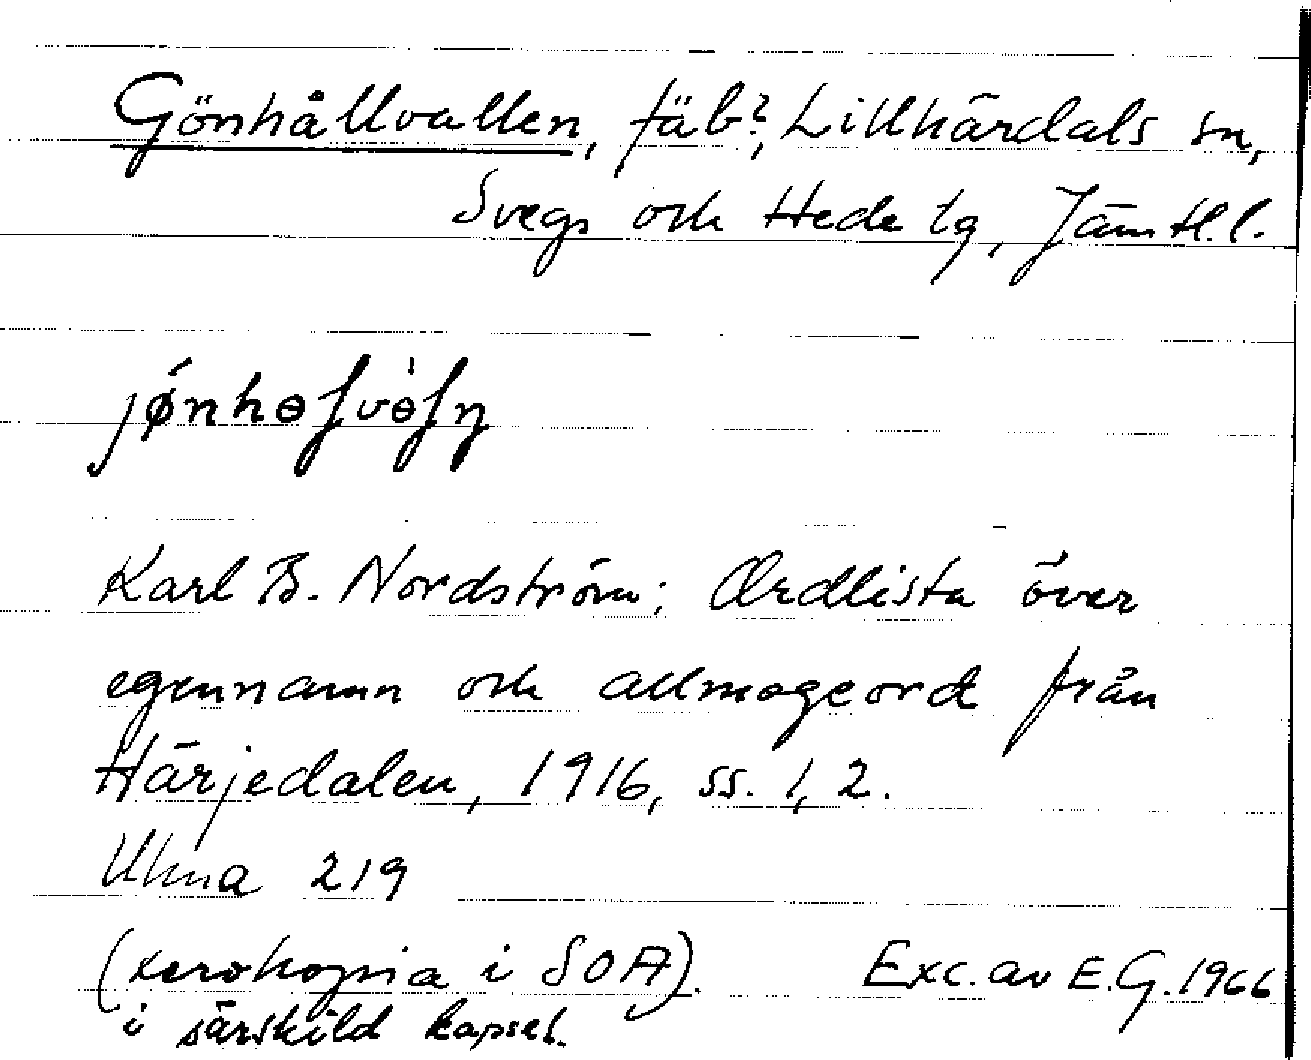 Gönhållvallen, fäb?, Lillhärdals sn,
Svegs och Hede tg, Jämtl. l.
Karl B. Nordström: Ordlista över
egennamn och allmogeord från
Härjedalen, 1916, ss. 1, 2.
Uma 219
(xerokopia i SOA).
i särskild kapsel.
Exc. av E.G. 1966